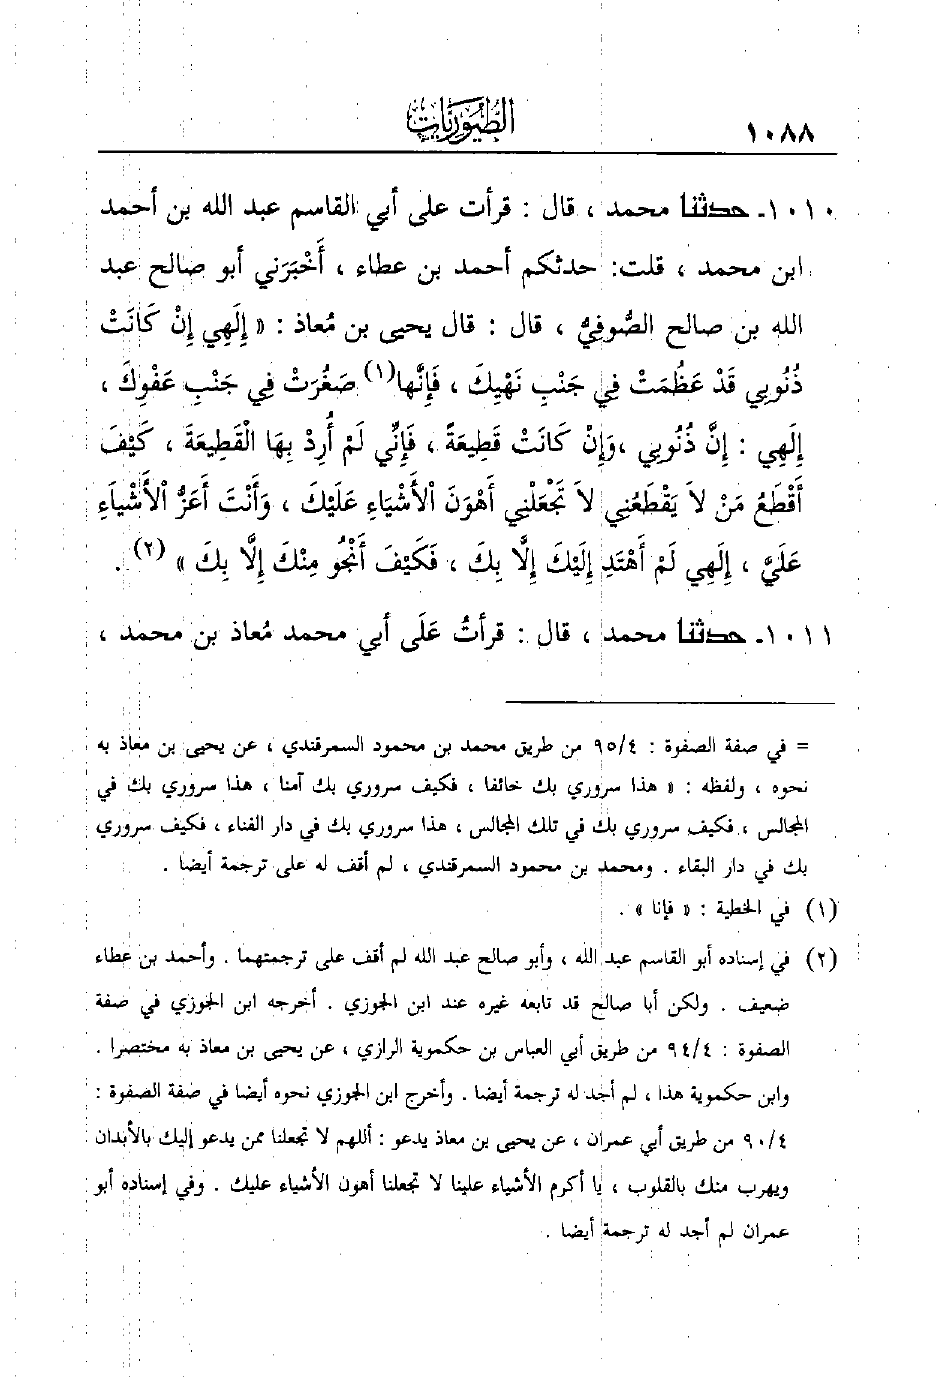 ١٠٨٨
الطُّيُورِيَّات
١٠١٠ـ حدثنا محمد ، قال : قرأت على أبي القاسم عبد الله بن أحمد
ابن محمد ، قلت: حدثكم أحمد بن عطاء ، أَخْبَرَني أبو صالح عبد
الله بن صالح الصُّوفيُّ ، قال : قال يحيى بن مُعاذ : « إِلَهِي إِنْ كَانَتْ
ذُنُوبِي قَدْ عَظُمَتْ فِي جَنْبِ نَهْيِكَ ، فَإِنَّها(١) صَغُرَتْ فِي جَنْبِ عَفْوِكَ ،
إِلَهِي : إِنَّ ذُنُوبِي ،وَإِنْ كَانَتْ قَطِيعَةً ، فَإِنِّي لَمْ أُرِدْ بِهَا الْقَطِيعَةَ ، كَيْفَ
أَقْطَعُ مَنْ لاَ يَقْطَعُنِي لاَ تَجْعَلْنِي أَهْوَنَ الْأَشْيَاءِ عَلَيْكَ ، وَأَنْتَ أَعَزُّ الْأَشْيَاءِ
عَلَيَّ ، إِلَهِي لَمْ أَهْتَدِ إِلَيْكَ إِلَّا بِكَ ، فَكَيْفَ أَنْجُو مِنْكَ إِلَّا بِكَ » (٢) .
١٠١١ـ حدثنا محمد ، قال : قرأتُ عَلَى أبي محمد مُعاذ بن محمد ،
= في صفة الصفوة : ٩٥/٤ من طريق محمد بن محمود السمرقندي ، عن يحيى بن معاذ به
نحوه ، ولفظه : « هذا سروري بك خائفا ، فكيف سروري بك آمنا ، هذا سروري بك في
المجالس ، فكيف سروري بك في تلك المجالس ، هذا سروري بك في دار الفناء ، فكيف سروري
بك في دار البقاء . ومحمد بن محمود السمرقندي ، لم أقف له على ترجمة أيضا .
(١) في الخطية : « فإنا » .
(٢) في إسناده أبو القاسم عبد الله ، وأبو صالح عبد الله لم أقف على ترجمتهما . وأحمد بن عطاء
ضعيف . ولكن أبا صالح قد تابعه غيره عند ابن الجوزي . أخرجه ابن الجوزي في صفة
الصفوة : ٩٤/٤ من طريق أبي العباس بن حكموية الرازي ، عن يحيى بن معاذ به مختصرا .
وابن حكموية هذا ، لم أجد له ترجمة أيضا . وأخرج ابن الجوزي نحوه أيضا في صفة الصفوة :
٩٠/٤ من طريق أبي عمران ، عن يحيى بن معاذ يدعو : أللهم لا تجعلنا ممن يدعو إليك بالأبدان
ويهرب منك بالقلوب ، يا أكرم الأشياء علينا لا تجعلنا أهون الأشياء عليك . وفي إسناده أبو
عمران لم أجد له ترجمة أيضا .